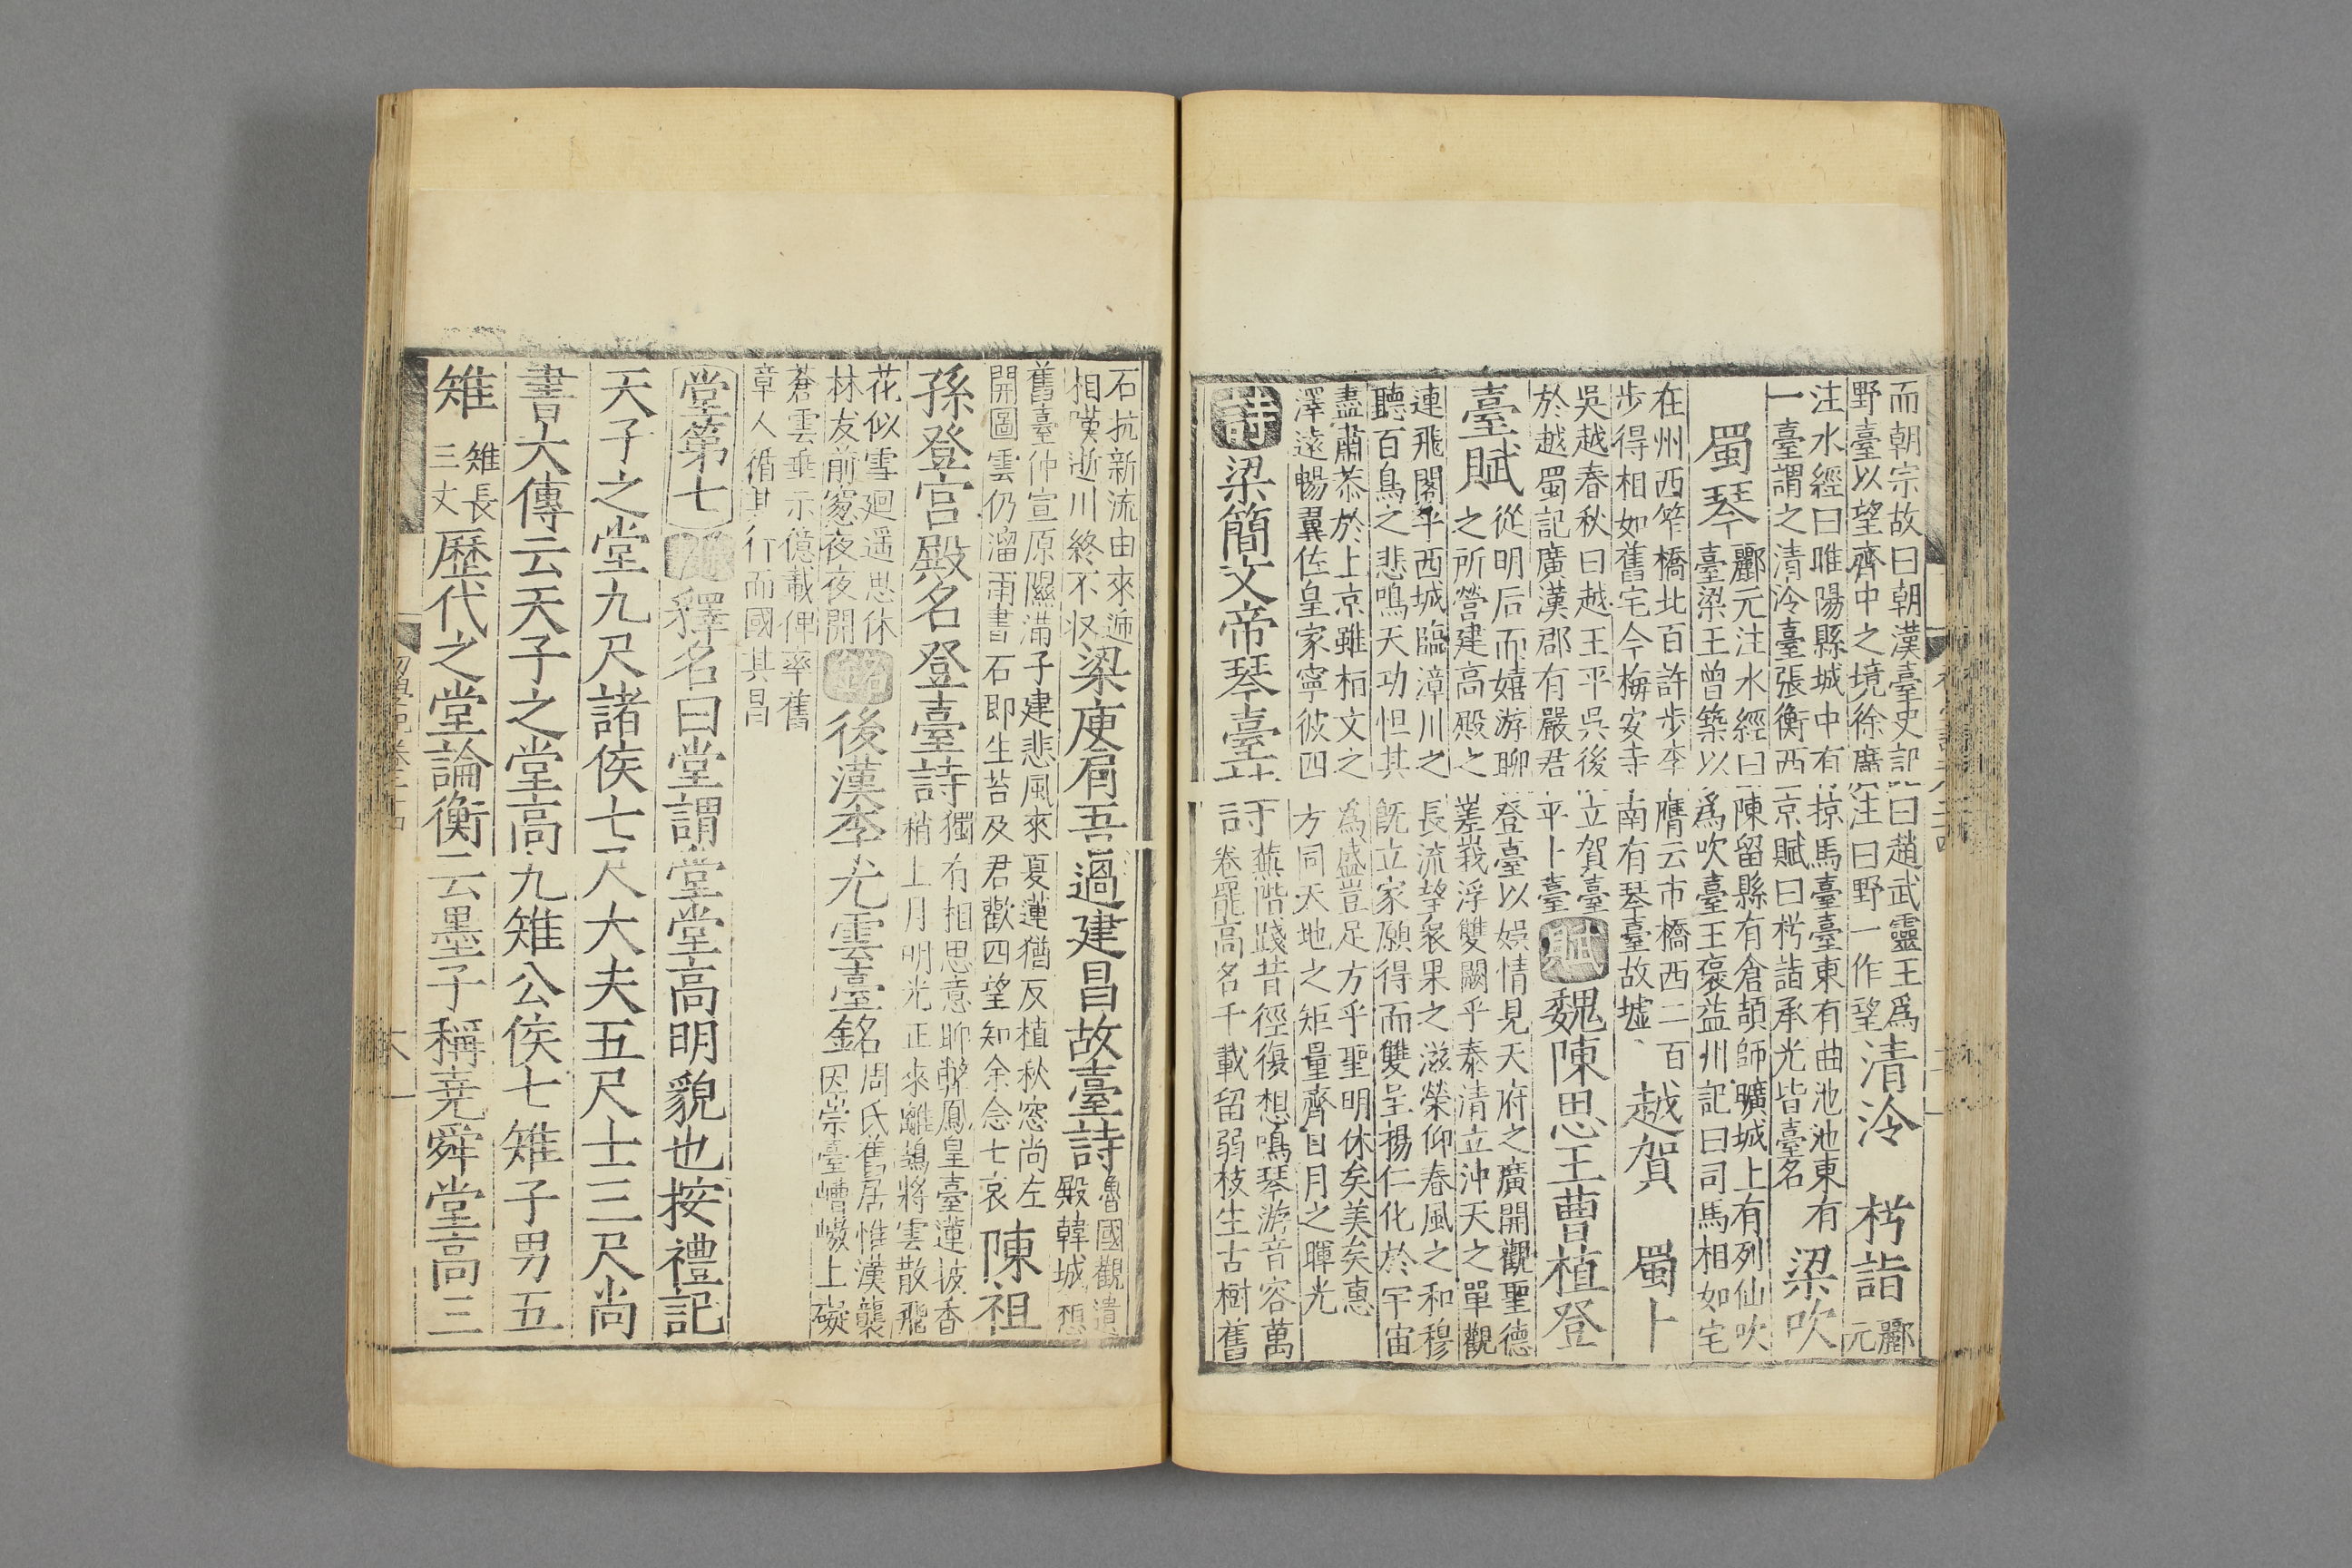 而朝宗故曰朝漢臺史記曰趙武靈王爲
野臺以望齊中之境徐廣注曰野一作望
清泠　枍詣　酈元
注水經曰睢陽縣城中有掠馬臺臺東有曲池池東有
一臺謂之清泠臺張衡西京賦曰枍詣承光皆臺名
梁吹
蜀琴
酈元注水經曰陳留縣有倉頡師曠城上有列仙吹
臺梁王曾築以爲吹臺王褒益州記曰司馬相如宅
在州西笮橋北百許步李膺云市橋西二百
步得相如舊宅今梅安寺南有琴臺故墟
越賀　蜀卜
吳越春秋曰越王平吳後立賀臺
於越蜀記廣漢郡有嚴君平卜臺
賦魏陳思王曹植登
臺賦
從明后而嬉游聊登臺以娛情見天府之廣開觀聖德
之所營建高殿之嵳峩浮雙闕乎泰清立沖天之單觀
連飛閣乎西城臨漳川之長流望衆果之滋榮仰春風之和穆
聽百鳥之悲鳴天功怛其旣立家願得而雙呈揚仁化於宇宙
盡肅恭於上京雖栢文之爲盛豈足方乎聖明休矣美矣惠
澤遠暢翼佐皇家寧彼四方同天地之矩量齊日月之暉光
詩梁簡文帝琴臺詩
蕪階踐昔徑復想鳴琴游音容萬
卷罷高名千載留弱枝生古樹舊
石抗新流由來遞
相嘆逝川終不収
梁庾肩吾過建昌故臺詩
魯國觀遺
殿韓城想
舊臺仲宣原隰滿子建悲風來夏蓮猶反植秋窓尚左
開圖雲仍溜雨書石即生苔及君歡四望知余念七哀
陳祖
孫登宮殿名登臺詩
獨有相思意聊敞鳳皇臺蓮披香
稍上月明光正來離鵾將雲散飛
花似雪廻遥思休
林友前窓夜夜開
銘後漢李尤雲臺銘
周氏舊居惟漢襲
因崇臺嶆㠍上礙
蒼雲垂示億載俾率舊
章人循其行而國其昌
堂第七　釋名曰堂謂堂堂高明貌也按禮記
天子之堂九尺諸侯七尺大夫五尺士三尺尚
書大傳云天子之堂高九雉公侯七雉子男五
雉雉長三丈歷代之堂論衡云墨子稱堯舜堂高三